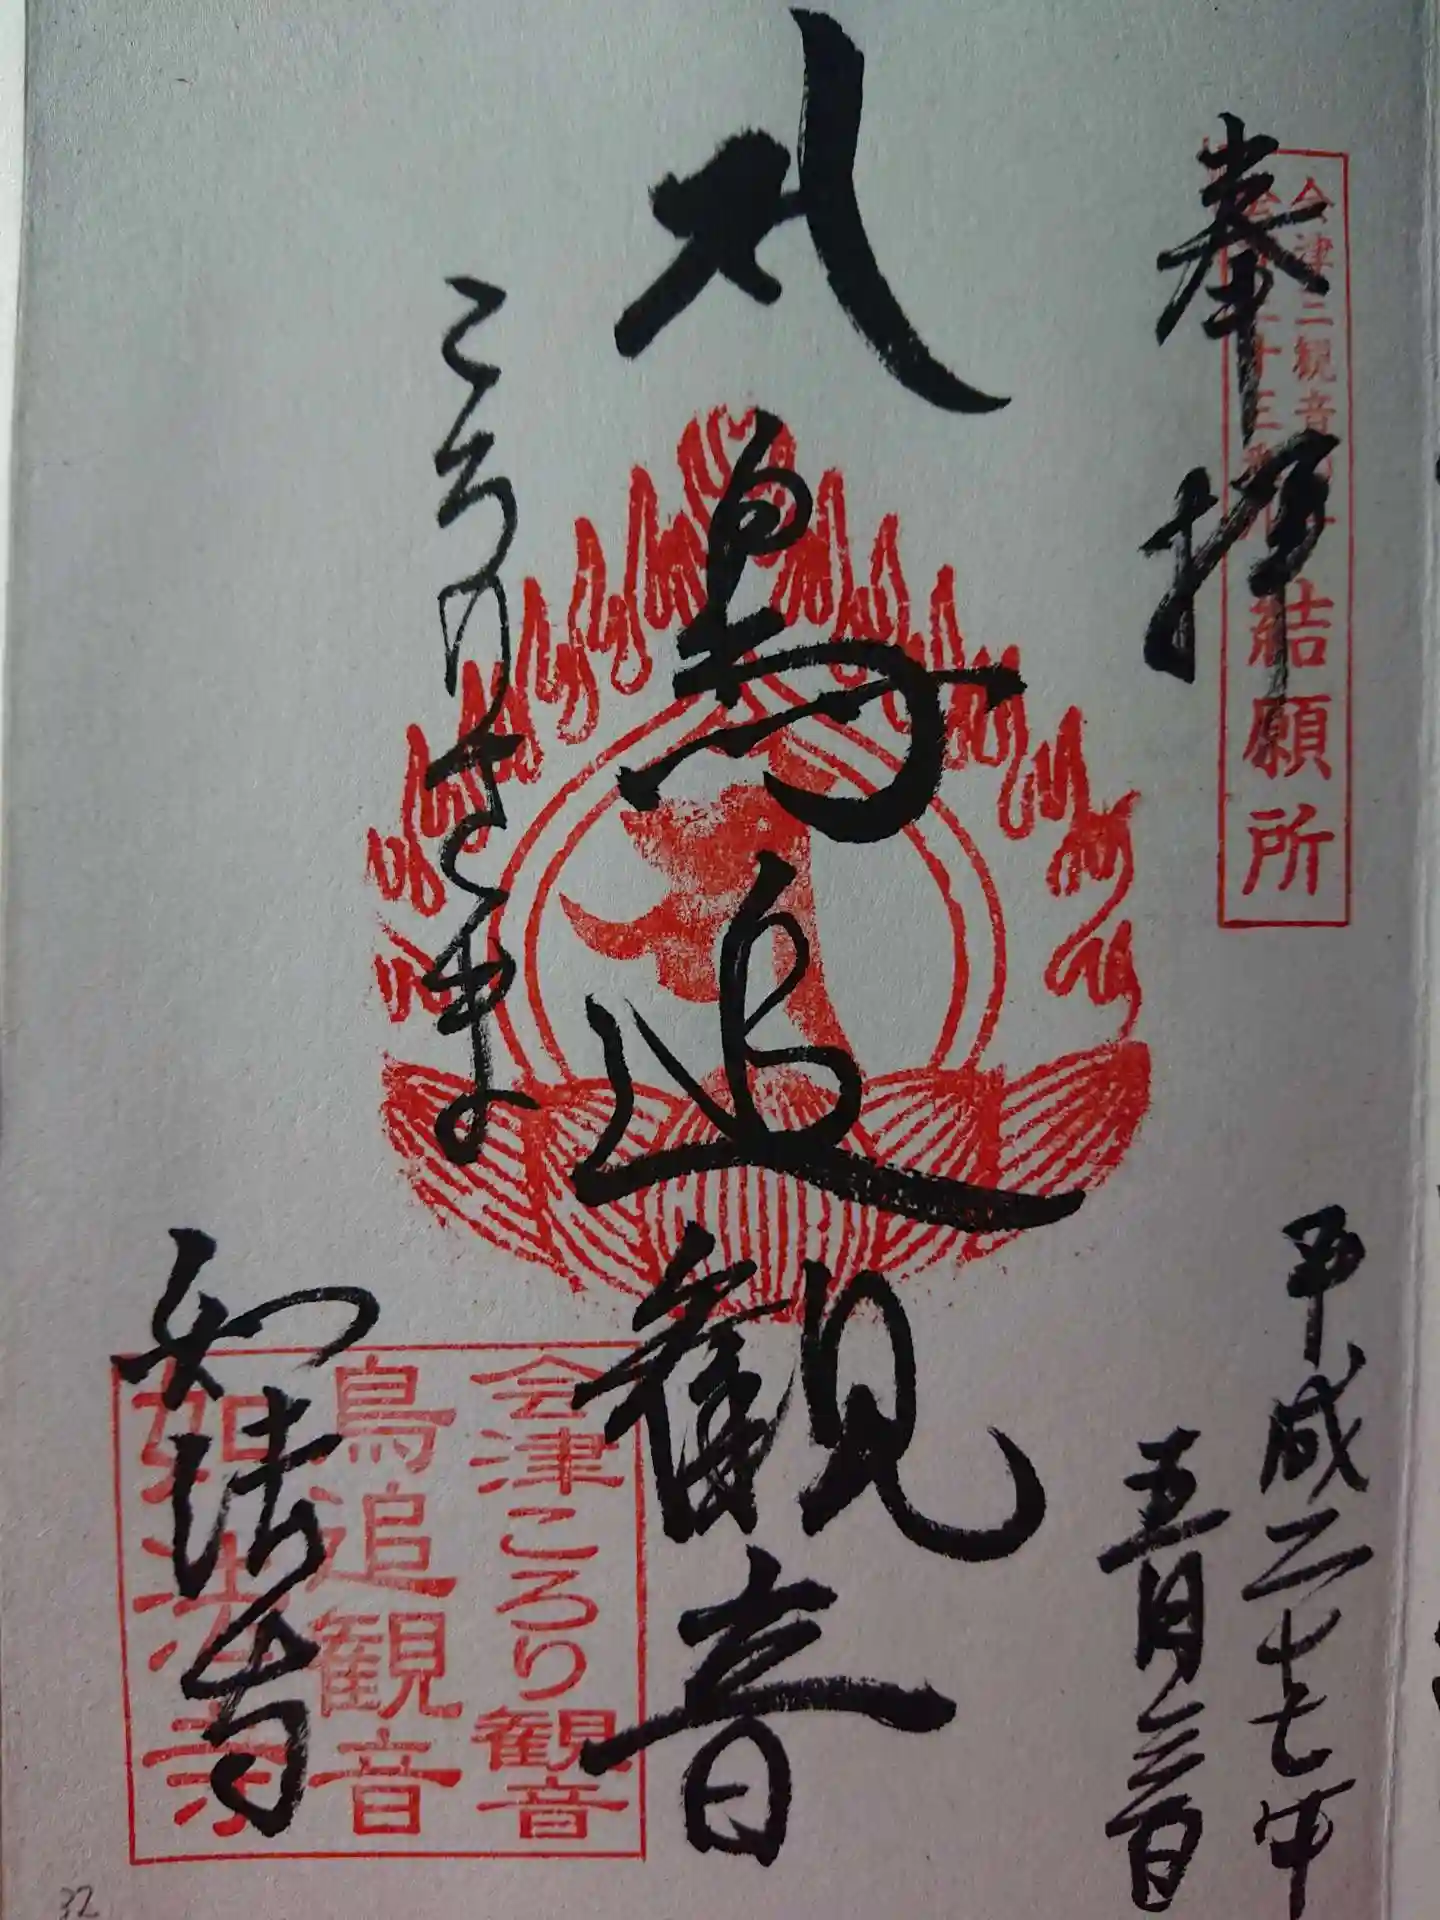 奉拝
会津三観音
結願所
平成二十七年
五月三日
鳥追観音
ころり三さま
如法寺
会津ころり観音
鳥追観音
如法寺
32